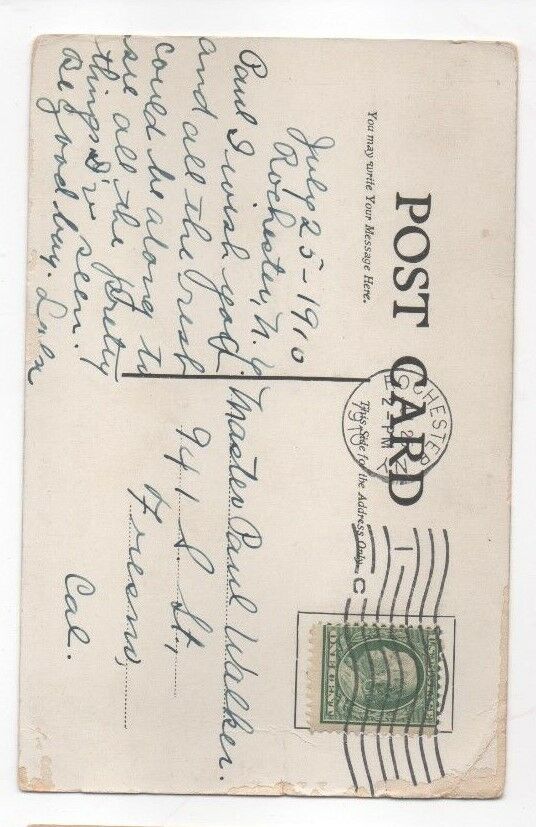 POST CARD
You may write Your Message Here.
This Side for the Address Only.
July 25-1910
Rochester, N.Y.
Paul I wish you
and all the rest
could be along to
see all the pretty
things I'v seen.
Be good boy. Lula
Master Paul Walker.
941 S St,
Fresno,
Cal.
2-PM
1910
N.Y.
1
C